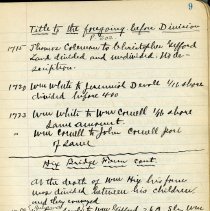 9
Title to the foregoing before Division
1715 Thomas Coleman to Christopher Gifford
Land divided and undivided. No de-
scription.
1720 Wm White to Jeremiah Devoll 1/16 share
divided before
1723 Wm White to Wm Cornell 1/6 share
Same amount.
" Wm Cornell to John Cornell part
of same
Hix Bridge Farm cont.
At the death of Wm Hix his farm
was divided between his children
and they conveyed